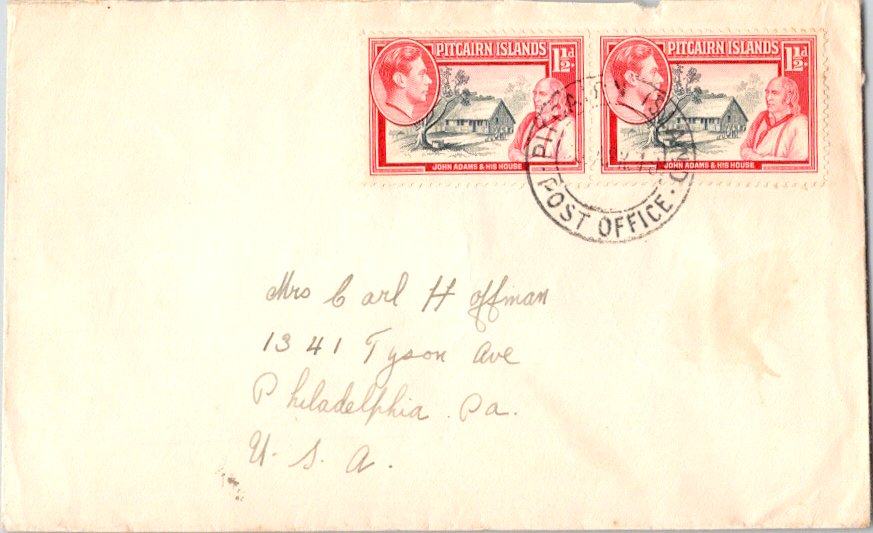 PITCAIRN ISLANDS 1½d
JOHN ADAMS & HIS HOUSE
PITCAIRN ISLANDS 1½d
JOHN ADAMS & HIS HOUSE
POST OFFICE
Mrs Carl Hoffman
1341 Tyson Ave
Philadelphia. Pa.
U. S. A.